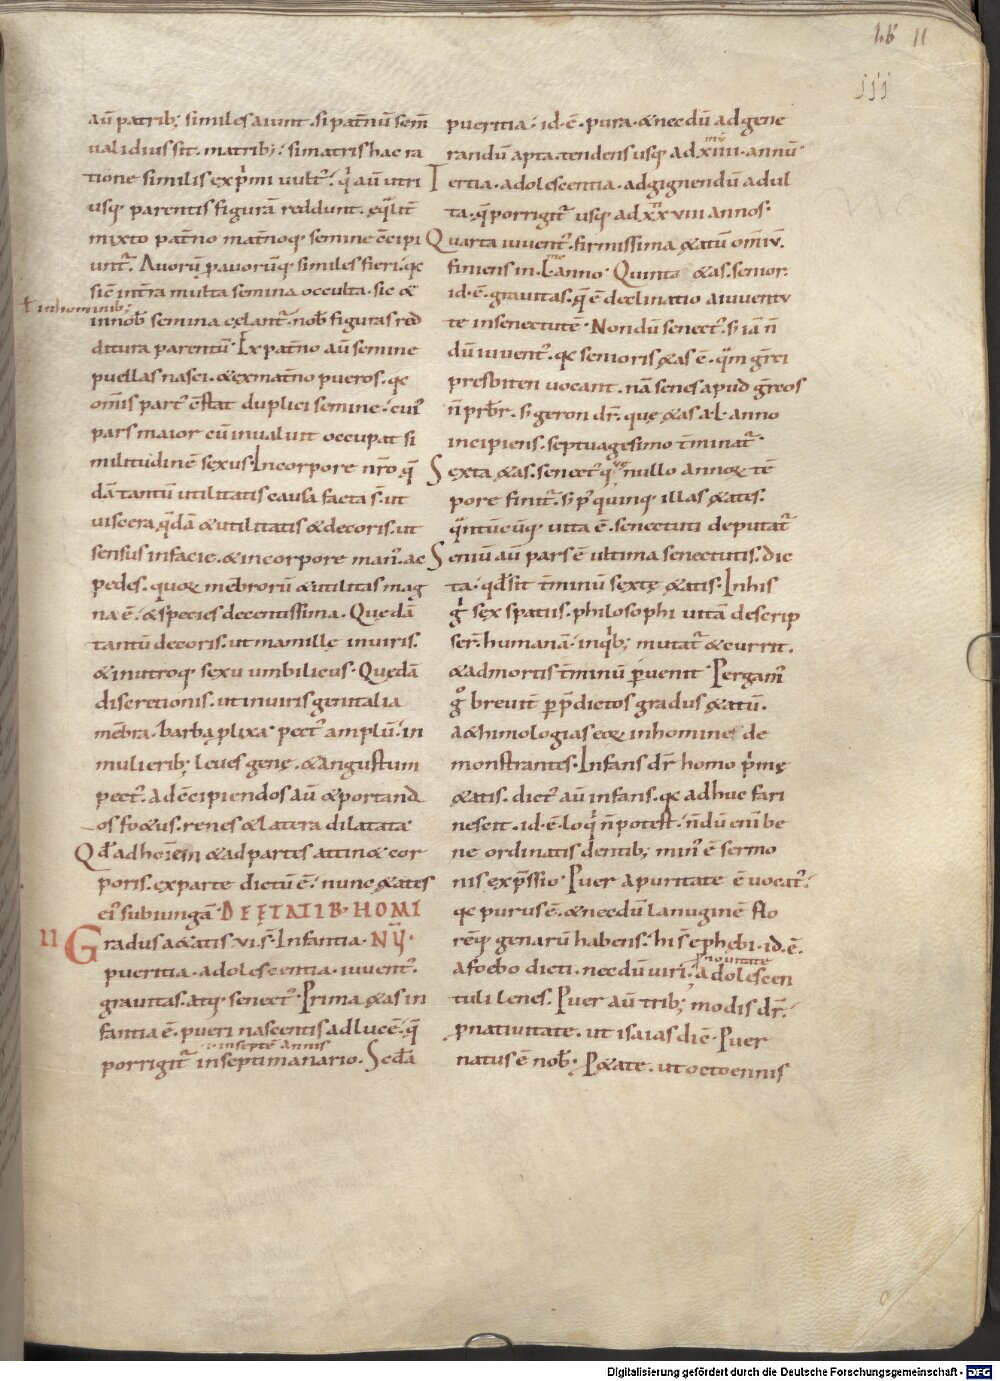 Lib II
iii
aū patrib; similes aiunt. si pat̄nū sem̄
ualidius sit. matrib;: si matris hac ra
tione similis exp̄mi uult᷒. q̇ aū utri
usq; parentis figurā reddunt. ęq̄lit̄
mixto pat̄no mat̄noq; semine c̄cipi
unt᷒. Auorū ꝓauorūq; similes fieri. qc
sic̄ int̄ra multa semina occulta. sic &
ł in hominib;
in nob̄ semina cęlant᷒. nob̄ figuras red
ditura parentū. Ex pat̄no aū semine
puellas nasci. & ex mat̄no pueros. qc
om̄is part᷒ c̄stat duplici semine. cui᷒
pars maior cū inualuit occupat si
militudinē sexus. In corpore nr̄o. q̄
dā tantū utilitatis causa facta s̄. ut
uiscera. q̄dā & utilitatis & decoris. ut
sensus in facie. & in corpore man᷒. ac
pedes. quoꝝ mēbrorū & utilitas mag
na ē. & species decentissima. Quedā
tantū decoris. ut mamillę in uiris.
& in utroq; sexu umbilicus. Quędā
discretionis. ut in uiris genitalia
mēbra. barba ꝓlixa. pect᷒ amplū. in
mulierib; leues genę. & angustum
pect᷒. ad c̄cipiendos aū & portand
os foetus. renes & latera dilatata
Qđ ad hoīem & ad partes attin& cor
poris. ex parte dictū ē. nunc ętates
ei᷒ subiungā. DE ĘTATIB. HOMI
II Gradus aetatis .vi. s̄. Infantia. NŪ.
pueritia. adolescentia. iuuent᷒.
grauitas. atq; senect᷒. Prima ętas in
fantia ē. pueri nascentis ad lucē. q̄
.i. in septē annis
porrigit᷒ in septimanario. Secđa
pueritia. id ē. pura. & necdū ad gene
randū apta. tendens usq; ad xiiii annū
Tertia. adolescentia. ad gignendū adul
ta. q̄ porrigit᷒ usq; ad xxviii annos.
Quarta iuuent᷒. firmissima ętatū omīu.
finiens in .L. anno. Quinta ętas. senior.
id ē. grauitas. q̄ ē declinatio a iuuentu
te in senectutē. Nondū senect᷒. s; iā n̄
dū iuuent᷒. qc senioris ętas ē. q̄m gr̄ci
presbiten uocant. nā senes apud gr̄cos
n̄ prb̄r. s; geron dr̄. quę ętas a .L. anno
incipiens. septuagesimo t̄minat᷒.
Sexta ętas. senect᷒ q̄ nullo annoꝝ tē
pore finit᷒. s; p᷒ quinq; illas ętates.
q̄ntūcūq; uita ē. senectuti deputat᷒
Seniū aū pars ē ultima senectutis. dic
ta. qđ sit t̄minū sextę ętatis. In his
g̊ sex spatiis. philosophi uitā descrip
ser̄ humanā. in q̇b; mutat᷒ & currit.
& ad mortis t̄minū ꝑuenit. Pergam᷒
g̊ breuit̄ ꝑ p̄dictos gradus ętatū.
aethimologias eoꝝ in homine de
monstrantes. Infans dr̄ homo p̄mę
ętatis. dict᷒ aū infans. qc adhuc fari
nescit. id ē. loq̇ n̄ potest. n̄dū eni be
ne ordinatis dentib; min᷒ ē sermo
nis exp̄ssio. Puer a puritate ē uocat᷒:
qc purus ē. & necdū lanuginē flo
rēq; genarū habens. hi s̄ ephebi. id ē.
a foebo dicti. necdū uiri. adolescen
tuli lenes. Puer aū trib; modis dr̄.
ꝓ natiuitate. ut isaias dic̄. Puer
natus ē nob̄. P ętate. ut octoennis
Digitalisierung gefördert durch die Deutsche Forschungsgemeinschaft - DFG